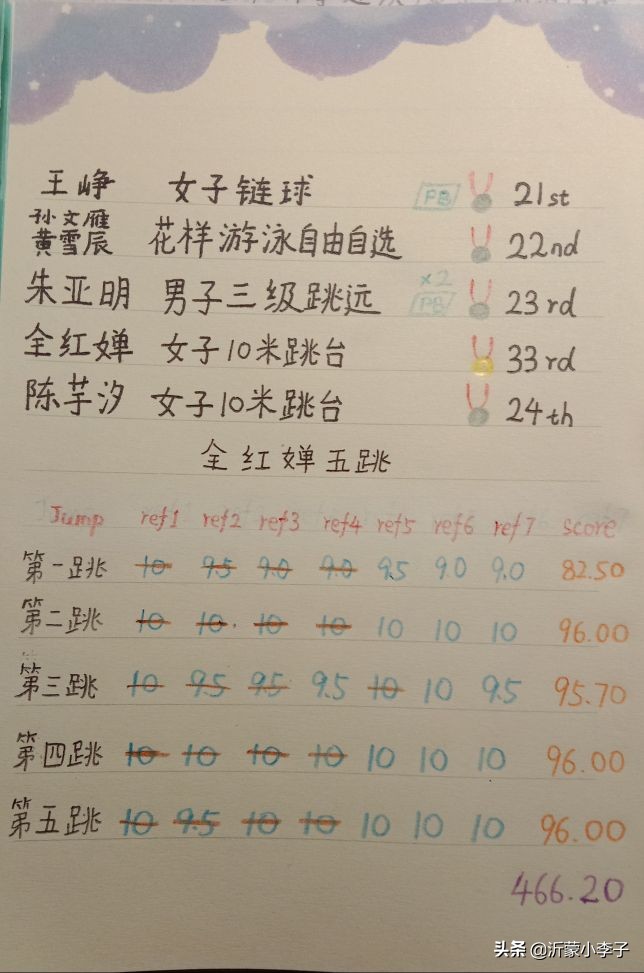 王峥 女子链球 PB 21st
孙文雁
黄雪辰 花样游泳自由自选 22nd
朱亚明 男子三级跳远 x2 PB 23rd
全红婵 女子10米跳台 33rd
陈芋汐 女子10米跳台 24th
全红婵五跳
Jump ref1 ref2 ref3 ref4 ref5 ref6 ref7 score
第一跳 10 9.5 9.0 9.0 9.5 9.0 9.0 82.50
第二跳 10 10 10 10 10 10 10 96.00
第三跳 10 9.5 9.5 9.5 10 10 9.5 95.70
第四跳 10 10 10 10 10 10 10 96.00
第五跳 10 9.5 10 10 10 10 10 96.00
466.20
头条 @沂蒙小李子